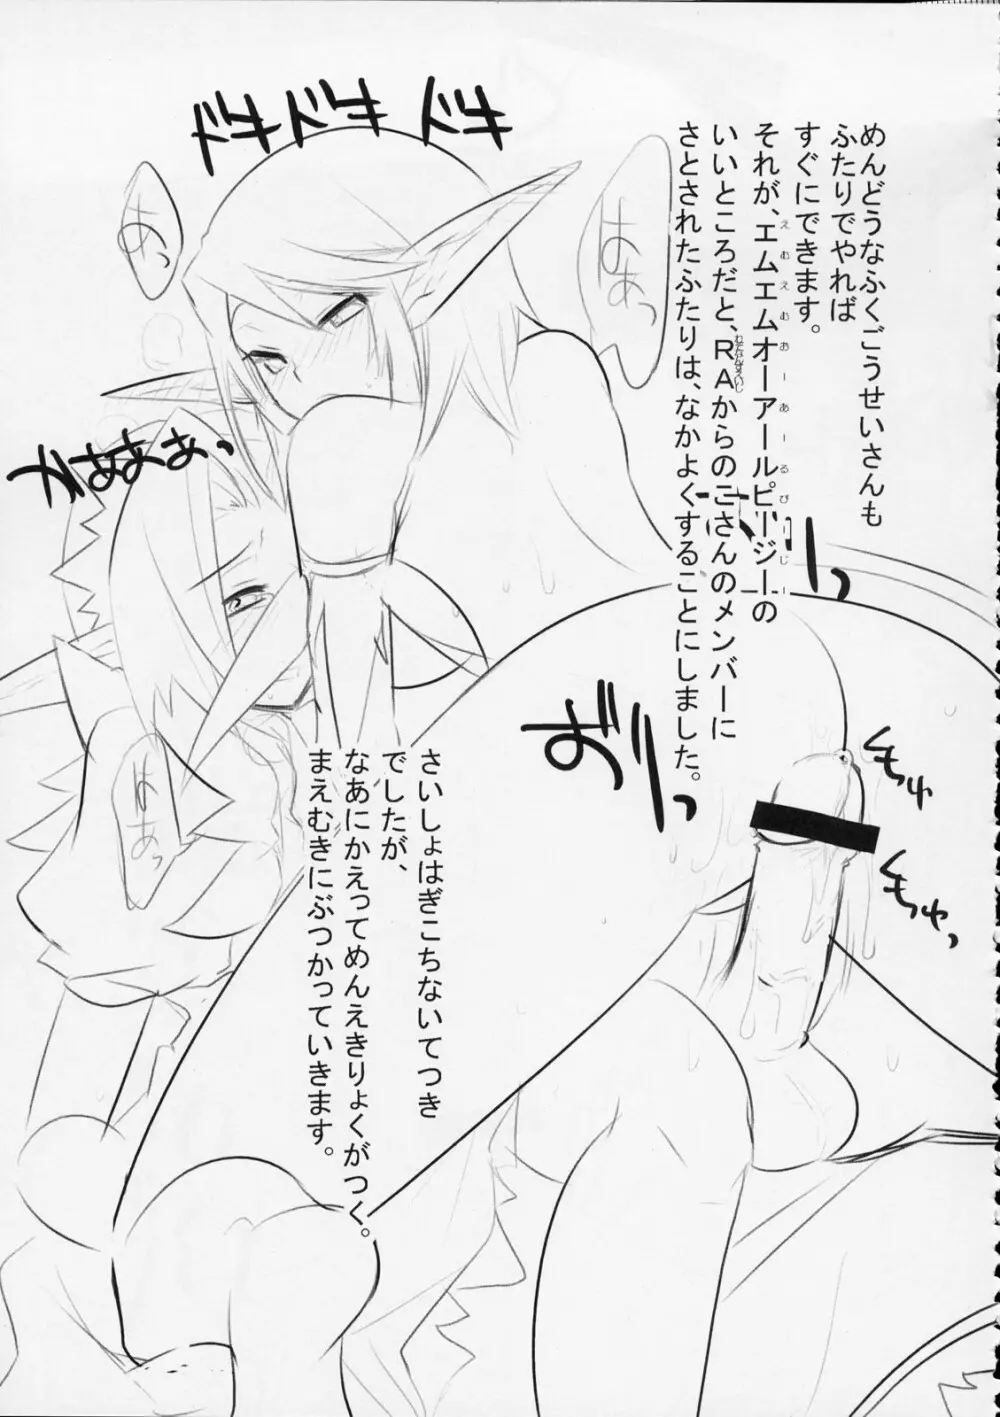 めんどうなふくごうせいさんも
ふたりでやれば
すぐにできます。
それが、エムエムオーアールピージーの
いいところだと、RAからのこさんのメンバーに
さとされたふたりは、なかよくすることにしました。
さいしょはぎこちないてつき
でしたが、
なあにかえってめんえきりょくがつく。
まえむきにぶつかっていきます。
ドキドキドキ
はぁっ
はぁっ
かぁぁぁぁっ
はぁっ
くもっゅ
くもっゅっ